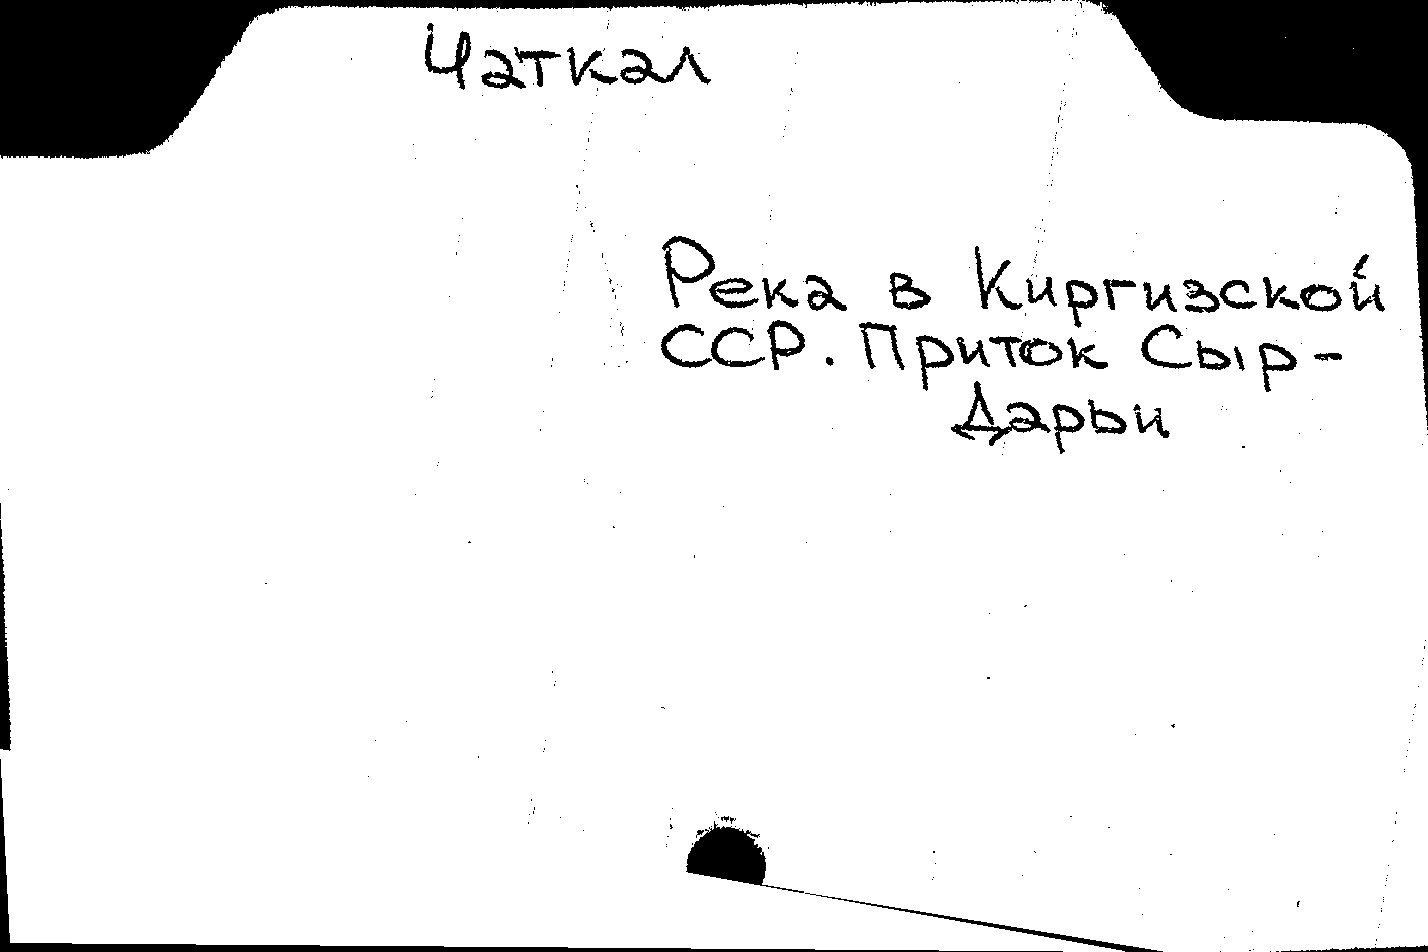 Чаткал
Река в Киргизской
ССР. Приток Сыр-
Дарьи